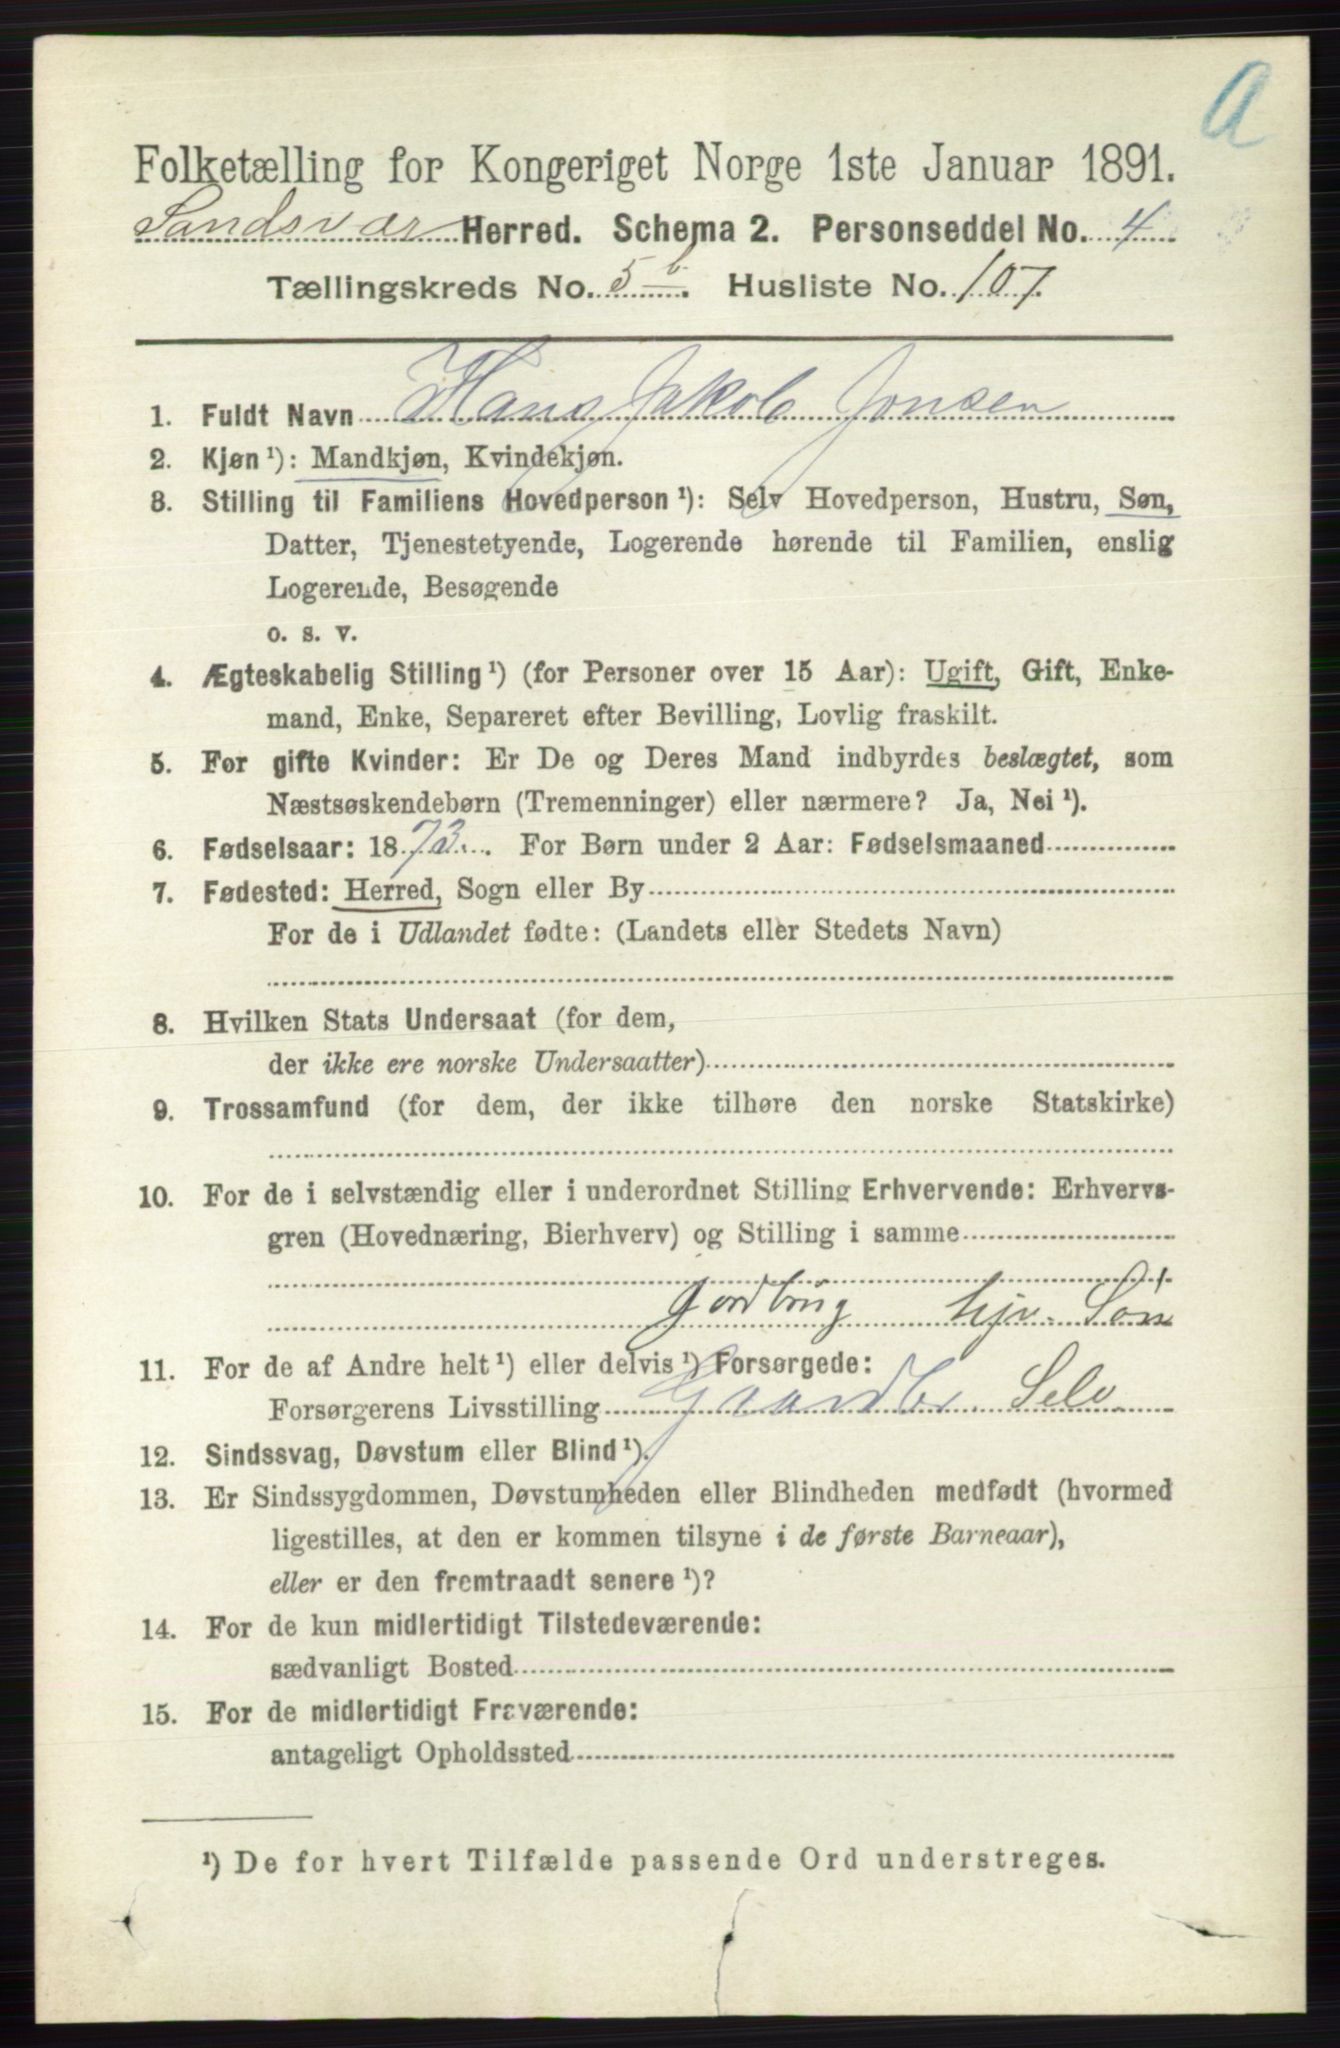 a
Folketælling for Kongeriget Norge 1ste Januar 1891.
Sandsvær Herred. Schema 2. Personseddel No. 4
Tællingskreds No. 5 b. Husliste No. 107.
1. Fuldt Navn Hans Jakob Jonsen
2. Kjøn ¹): Mandkjøn, Kvindekjøn.
3. Stilling til Familiens Hovedperson ¹): Selv Hovedperson, Hustru, Søn,
Datter, Tjenestetyende, Logerende hørende til Familien, enslig
Logerende, Besøgende
o. s. v.
4. Ægteskabelig Stilling ¹) (for Personer over 15 Aar): Ugift, Gift, Enke-
mand, Enke, Separeret efter Bevilling, Lovlig fraskilt.
5. For gifte Kvinder: Er De og Deres Mand indbyrdes beslægtet, som
Næstsøskendebørn (Tremenninger) eller nærmere? Ja, Nei ¹).
6. Fødselsaar: 1873. For Børn under 2 Aar: Fødselsmaaned
7. Fødested: Herred, Sogn eller By
For de i Udlandet fødte: (Landets eller Stedets Navn)
8. Hvilken Stats Undersaat (for dem,
der ikke ere norske Undersaatter)
9. Trossamfund (for dem, der ikke tilhøre den norske Statskirke)
10. For de i selvstændig eller i underordnet Stilling Erhvervende: Erhvervs-
gren (Hovednæring, Bierhverv) og Stilling i samme
Jordbrug hjv. Søn
11. For de af Andre helt ¹) eller delvis ¹) Forsørgede:
Forsørgerens Livsstilling Gaardbr. Selv
12. Sindssvag, Døvstum eller Blind ¹).
13. Er Sindssygdommen, Døvstumheden eller Blindheden medfødt (hvormed
ligestilles, at den er kommen tilsyne i de første Barneaar),
eller er den fremtraadt senere ¹)?
14. For de kun midlertidigt Tilstedeværende:
sædvanligt Bosted
15. For de midlertidigt Fraværende:
antageligt Opholdssted
¹) De for hvert Tilfælde passende Ord understreges.